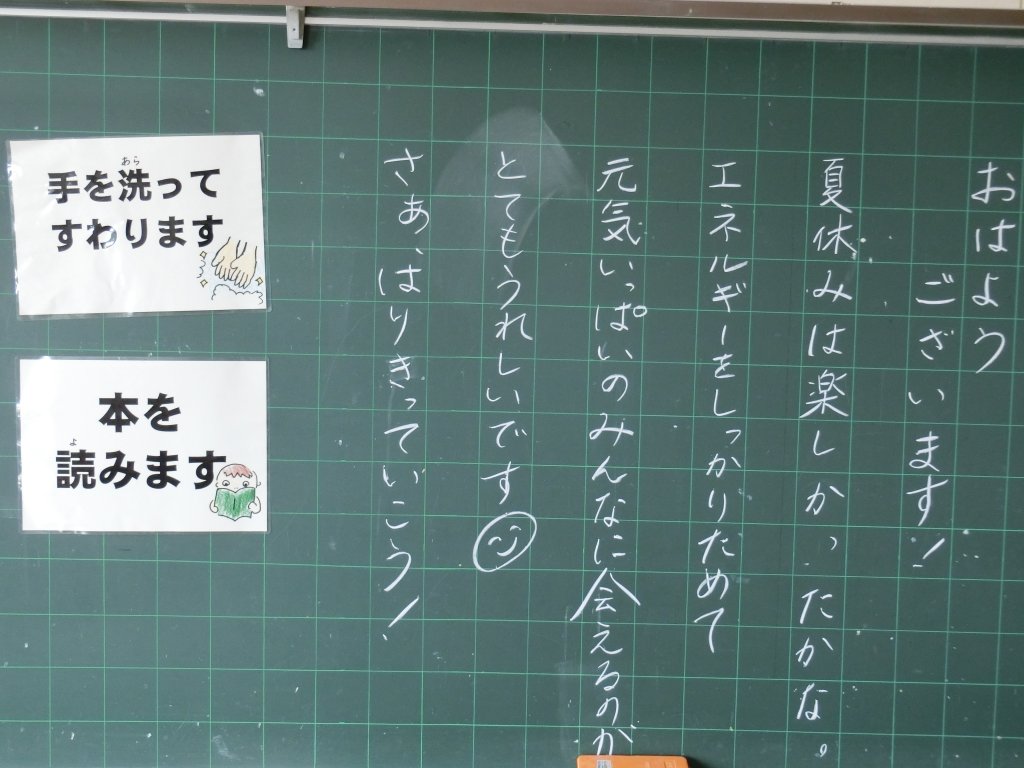 おはよう
ございます!
夏休みは楽しかったかな。
エネルギーをしっかりためて
元気いっぱいのみんなに会えるのが
とてもうれしいです
さぁ、はりきっていこう!
手を洗って
すわります
本を
読みます